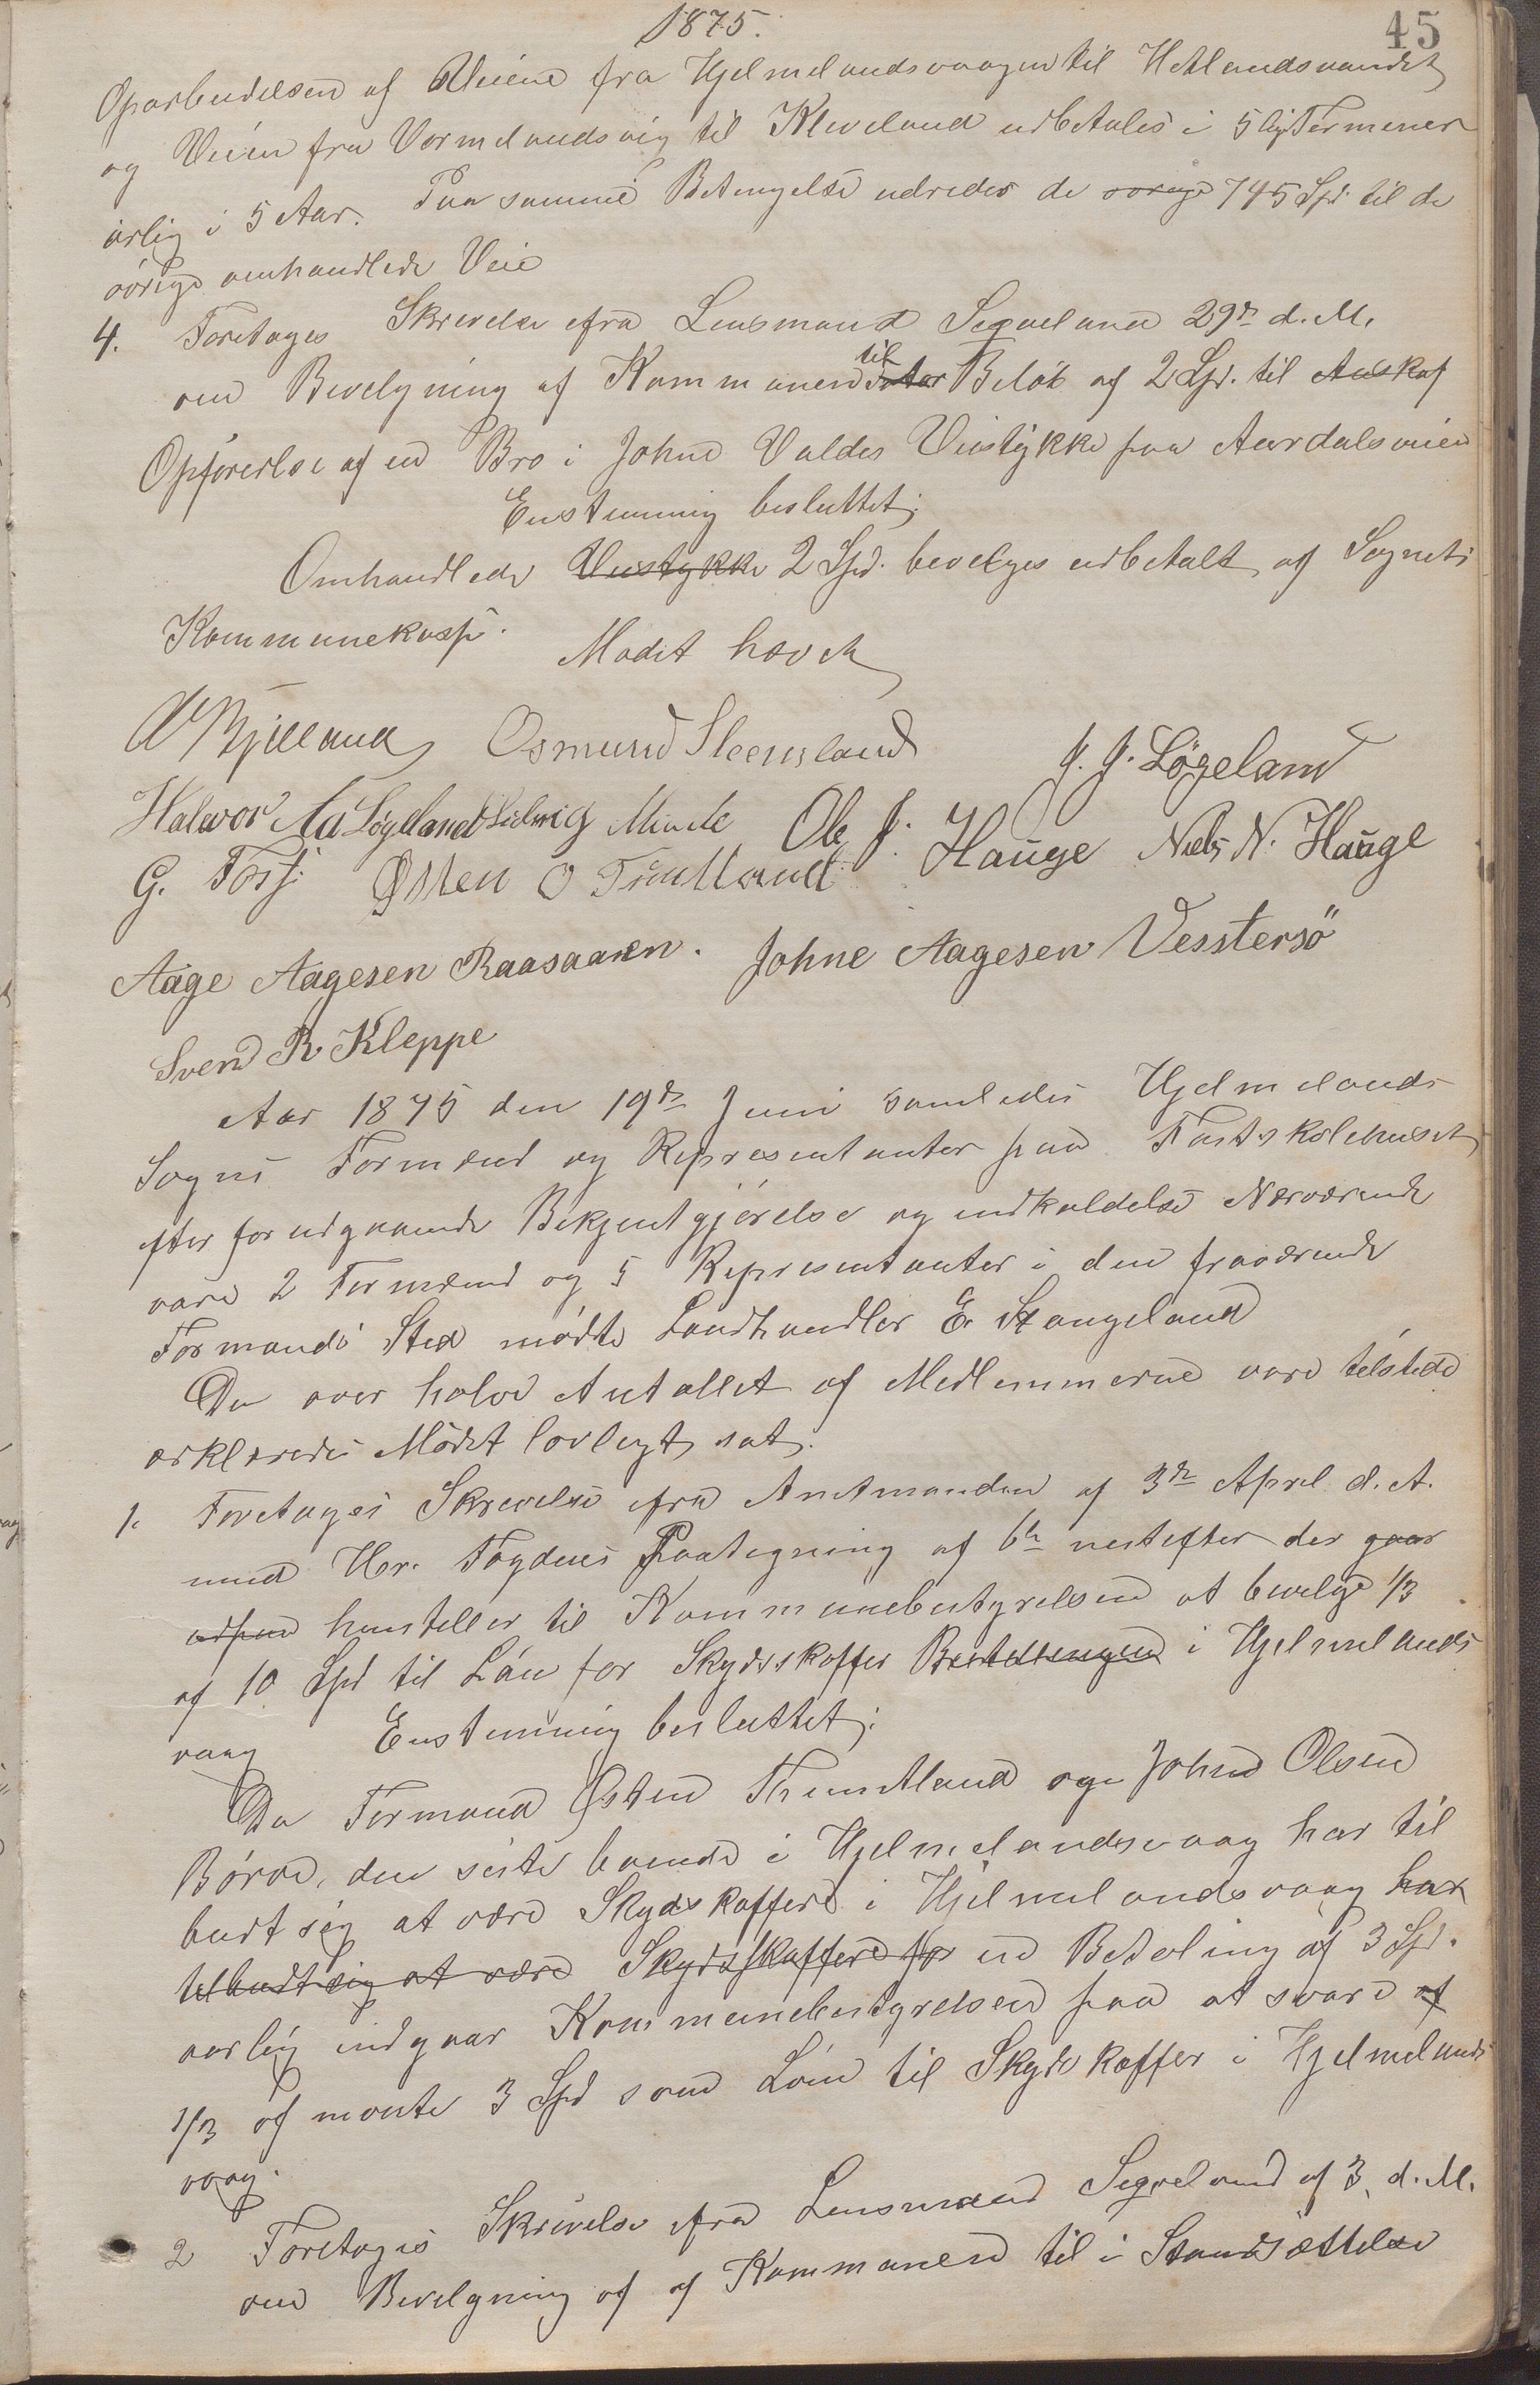 1875.
45
Oparbeidelsen af Veiene fra Hjelmelandsvaagen til Hetlandsvandet
og Veien fra Vormelandsvig til Kleveland udbetales i 5 lige Terminer
årlig i 5 Aar. Paa samme Betingelse udredes de øvrige 745 Spd. til de
øvrige omhandlede Veie
4. Foretages Skrivelse ifra Lensmand Segveland 29de d. M.
om Bevilgning af Kommunen til Beløb af 2 Spd. til Anskaf
Opførerlse af en Bro i Johne Valdes Veistykke paa Aardalsveien
Enstemmig besluttet;
Omhandlede Veistykke 2 Spd. bevilges udbetalt af Sognets
Kommunekasse.
Mødet hævet
Osmund Steensland
J. J. Løgeland
Halvor Aa Løgeland Ludvig Minde Ole J. Hauge Niels N. Hauge
G. Østen O Tuntland
Aage Aagesen Raasaaen. Johne Aagesen Vesstersö
Svend R. Kleppe
Aar 1875 den 19de Juni samledes Hjelmelands
Sogns Formænd og Representanter paa Fastskolehuset
efter forudgaaende Bekjentgjørelse og indkaldelse Nærværende
vare 2 Formænd og 5 Representanter i den fraværende
Formands Sted mødte Landhandler E. Stangeland
Da over halve Antallet af Medlemmerne vare tilstede
erklæredes Mødet lovligt sat.
1. Foretages Skrivelse ifra Amtmanden af 3de April d. A.
med Hr. Fogdens Paategning af 6te nestefter der gaar
udpaa henstiller til Kommunebestyrelsen at bevilge 1/3
af 10 Spd til Løn for Skydsskaffer Bestillingen i Hjelmelands
vaag Enstemmig besluttet;
Da Formand Østen Thuntland og Johne Olsen
Børve, den siste boende i Hjelmelandsvaag har til
budt sig at være Skydskaffere i Hjelmelandsvaag har
tilbudt sig at være Skydsskaffere for en Betaling af 3 Spd.
aarlig indgaar Kommunebestyrelsen paa at svare af
1/3 af monte 3 Spd som Løn til Skydskaffer i Hjelmelands
vaag.
2 Foretages Skrivelse ifra Lensmand Segveland af 3. d. M.
om Bevilgning af af Kommunen til i Standsættelse